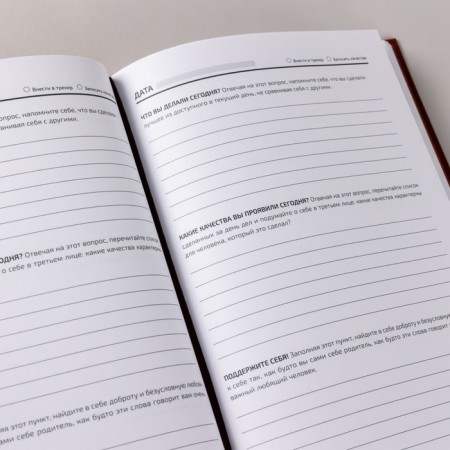 Внести в трекер Записать качества
опрос, напомните себе, что вы сделали
сравнивая себя с другими.
ОДНЯ? Отвечая на этот вопрос, перечитайте список
о себе в третьем лице: какие качества характерны
этот пункт, найдите в себе доброту и безусловную любовь
сами себе родитель, как будто эти слова говорит вам очень
ДАТА Внести в трекер Записать качества
ЧТО ВЫ ДЕЛАЛИ СЕГОДНЯ? Отвечая на этот вопрос, напомните себе, что вы сделали
лучшее из доступного в текущий день, не сравнивая себя с другими.
КАКИЕ КАЧЕСТВА ВЫ ПРОЯВИЛИ СЕГОДНЯ? Отвечая на этот вопрос, перечитайте список
сделанных за день дел и подумайте о себе в третьем лице: какие качества характерны
для человека, который это сделал?
ПОДДЕРЖИТЕ СЕБЯ! Заполняя этот пункт, найдите в себе доброту и безусловную
к себе так, как будто вы сами себе родитель, как будто эти слова говорит
важный любящий человек.